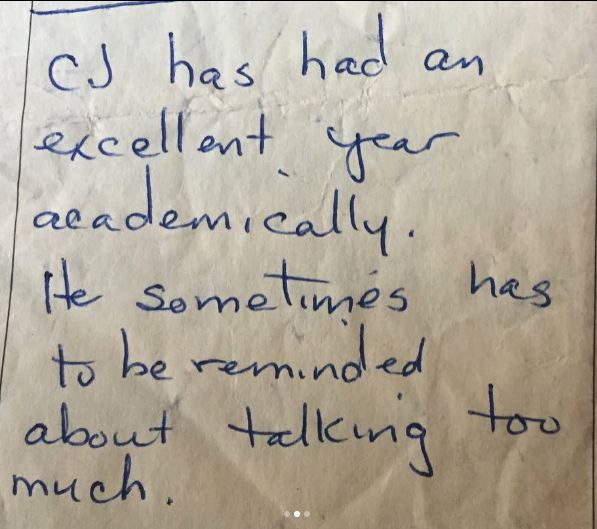 CJ has had an
excellent year
academically.
He sometimes has
to be reminded
about talking too
much.